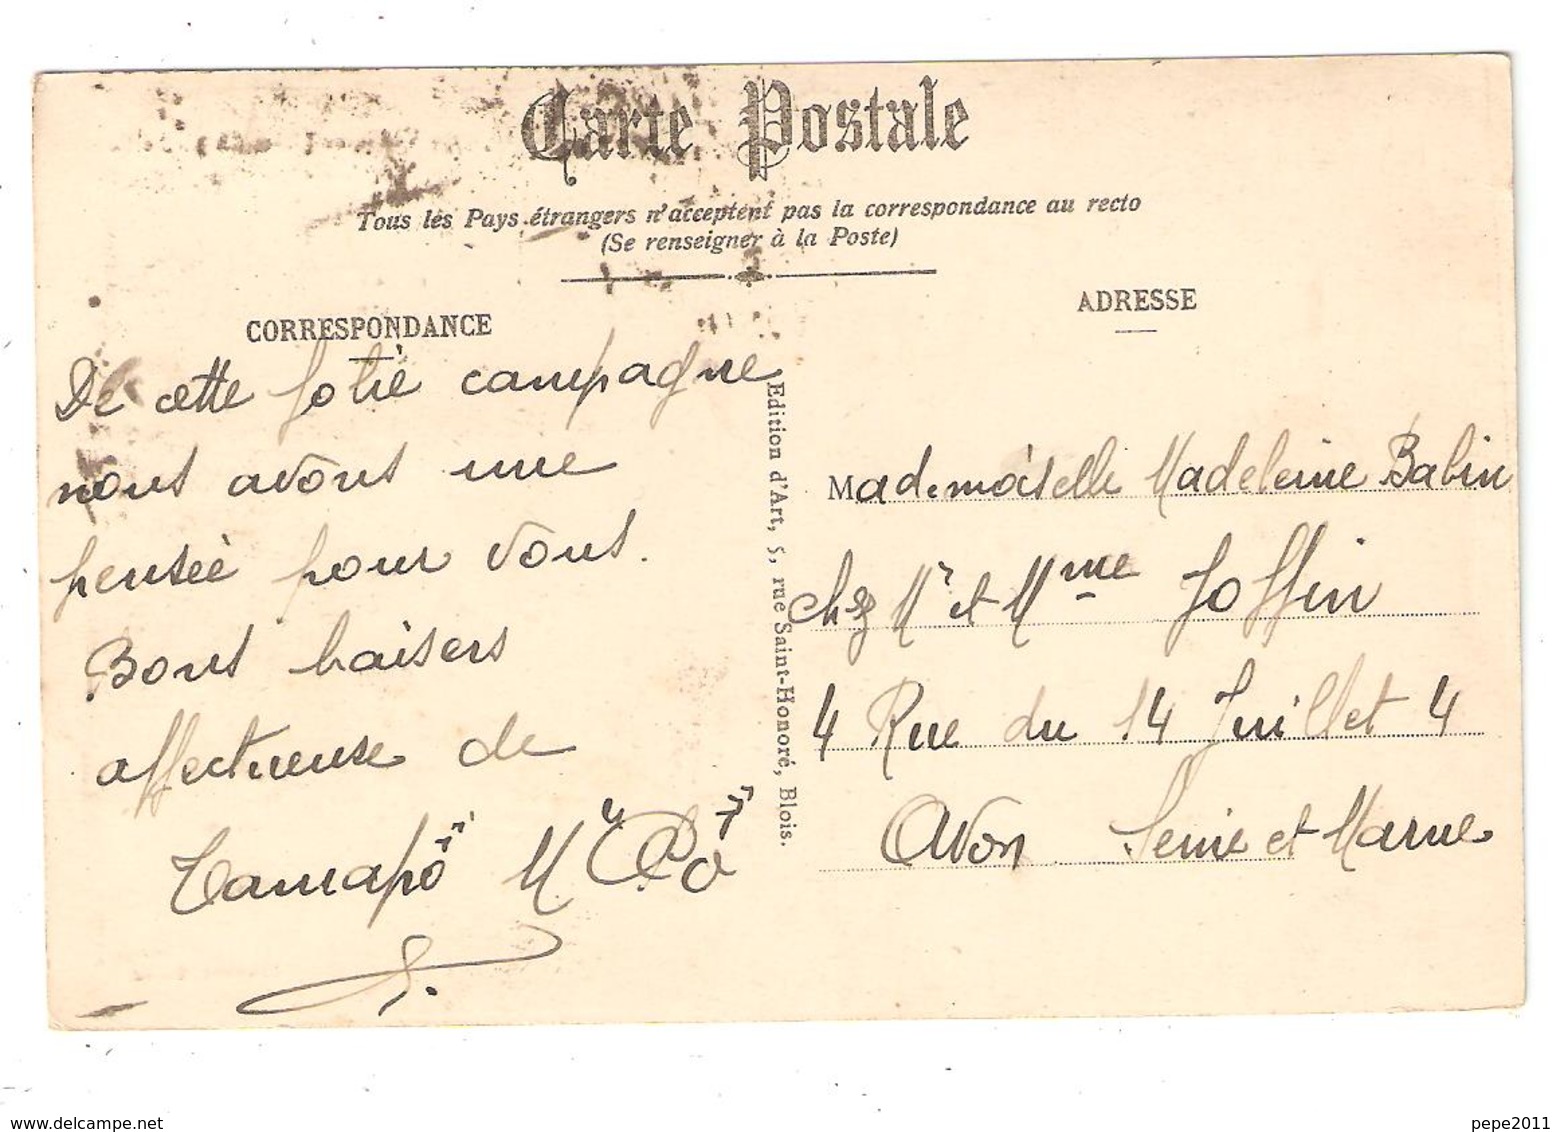 Carte Postale
Tous les Pays étrangers n'acceptent pas la correspondance au recto
(Se renseigner à la Poste)
CORRESPONDANCE
De cette jolie campagne
nous avons une
pensée pour vous.
Bons baisers
affectueuse de
M.
Edition d'Art, 5, rue Saint-Honoré, Blois.
ADRESSE
Mademoiselle Madeleine Babin
chez Mr et Mme Joffin
4 Rue du 14 Juillet 4
Avon Seine et Marne
delcampe.net
pepe2011